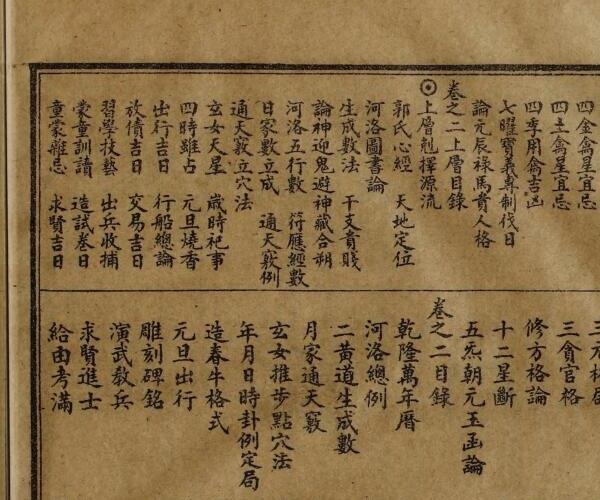 四金禽星宜忌
四土禽星宜忌
四季用禽吉凶
七曜寶義專制伐日
論元辰祿馬貴人格
卷之二上層目錄
上層剋擇源流
郭氏心經 天地定位
河洛圖書論
生成數法 干支貴賤
論神迎鬼避神藏合朔
河洛五行數 符應經數
日家數立成 通天竅例
通天竅立穴法
玄女天星 歲時祀事
四時雖占 元旦燒香
出行吉日 行船總論
放債吉日 交易吉日
習學技藝 出兵收捕
蒙童訓讀 造試卷日
童蒙雜忌 求賢吉日
三貪官格
修方格論
十二星斷
五炁朝元玉函論
卷之二目錄
乾隆萬年曆
河洛總例
二黃道生成數
月家通天竅
玄女推步點穴法
年月日時卦例定局
造春牛格式
元旦出行
雕刻碑銘
演武教兵
求賢進士
給由考滿